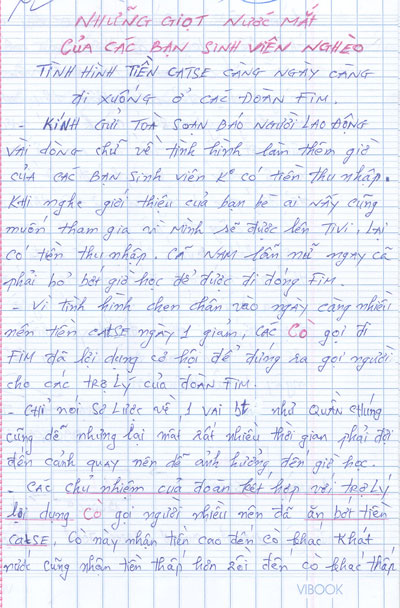 NHỮNG GIỌT NƯỚC MẮT
CỦA CÁC BẠN SINH VIÊN NGHÈO
TÌNH HÌNH TIỀN CATSE CÀNG NGÀY CÀNG
ĐI XUỐNG Ở CÁC ĐOÀN FIM.
- KÍNH GỬI TOÀ SOẠN BÁO NGƯỜI LAO ĐỘNG
VÀI DÒNG CHỮ VỀ tình hình làm thêm giờ
CỦA CÁC BẠN Sinh viên Kº có tiền thu nhập.
KHI nghe giới thiệu của bạn bè ai NẤY cũng
muốn tham gia vì Mình sẽ được lên TiVi. LẠI
có tiền thu nhập. CẢ NAM lẫn nữ ngay cả
phải bỏ bớt giờ học để được đi đóng FIM.
- Vì tình hình chen chân vào ngày càng nhiều
nên tiền catse ngày 1 giảm, CÁC CÒ gọi đi
FIM đã lợi dụng cơ hội để đứng ra gọi người
cho các TRỢ LÝ của ĐOÀN FIM.
- CHỈ nói Sơ Lược về 1 VAI bt như QUẦN CHÚNG
cũng dễ nhưng lại mất rất nhiều thời gian phải đợi
đến cảnh quay nên dễ ảnh hưởng đến giờ học.
- CÁC chủ nhiệm của đoàn kết hợp với TRỢ LÝ
lợi dụng CÒ gọi người nhiều nên đã ăn bớt tiền
catSE, CÒ này nhận tiền cao đến cò khác KHÁT
nước cũng nhận tiền thấp hơn rồi đến cò khác thấp
VIBOOK